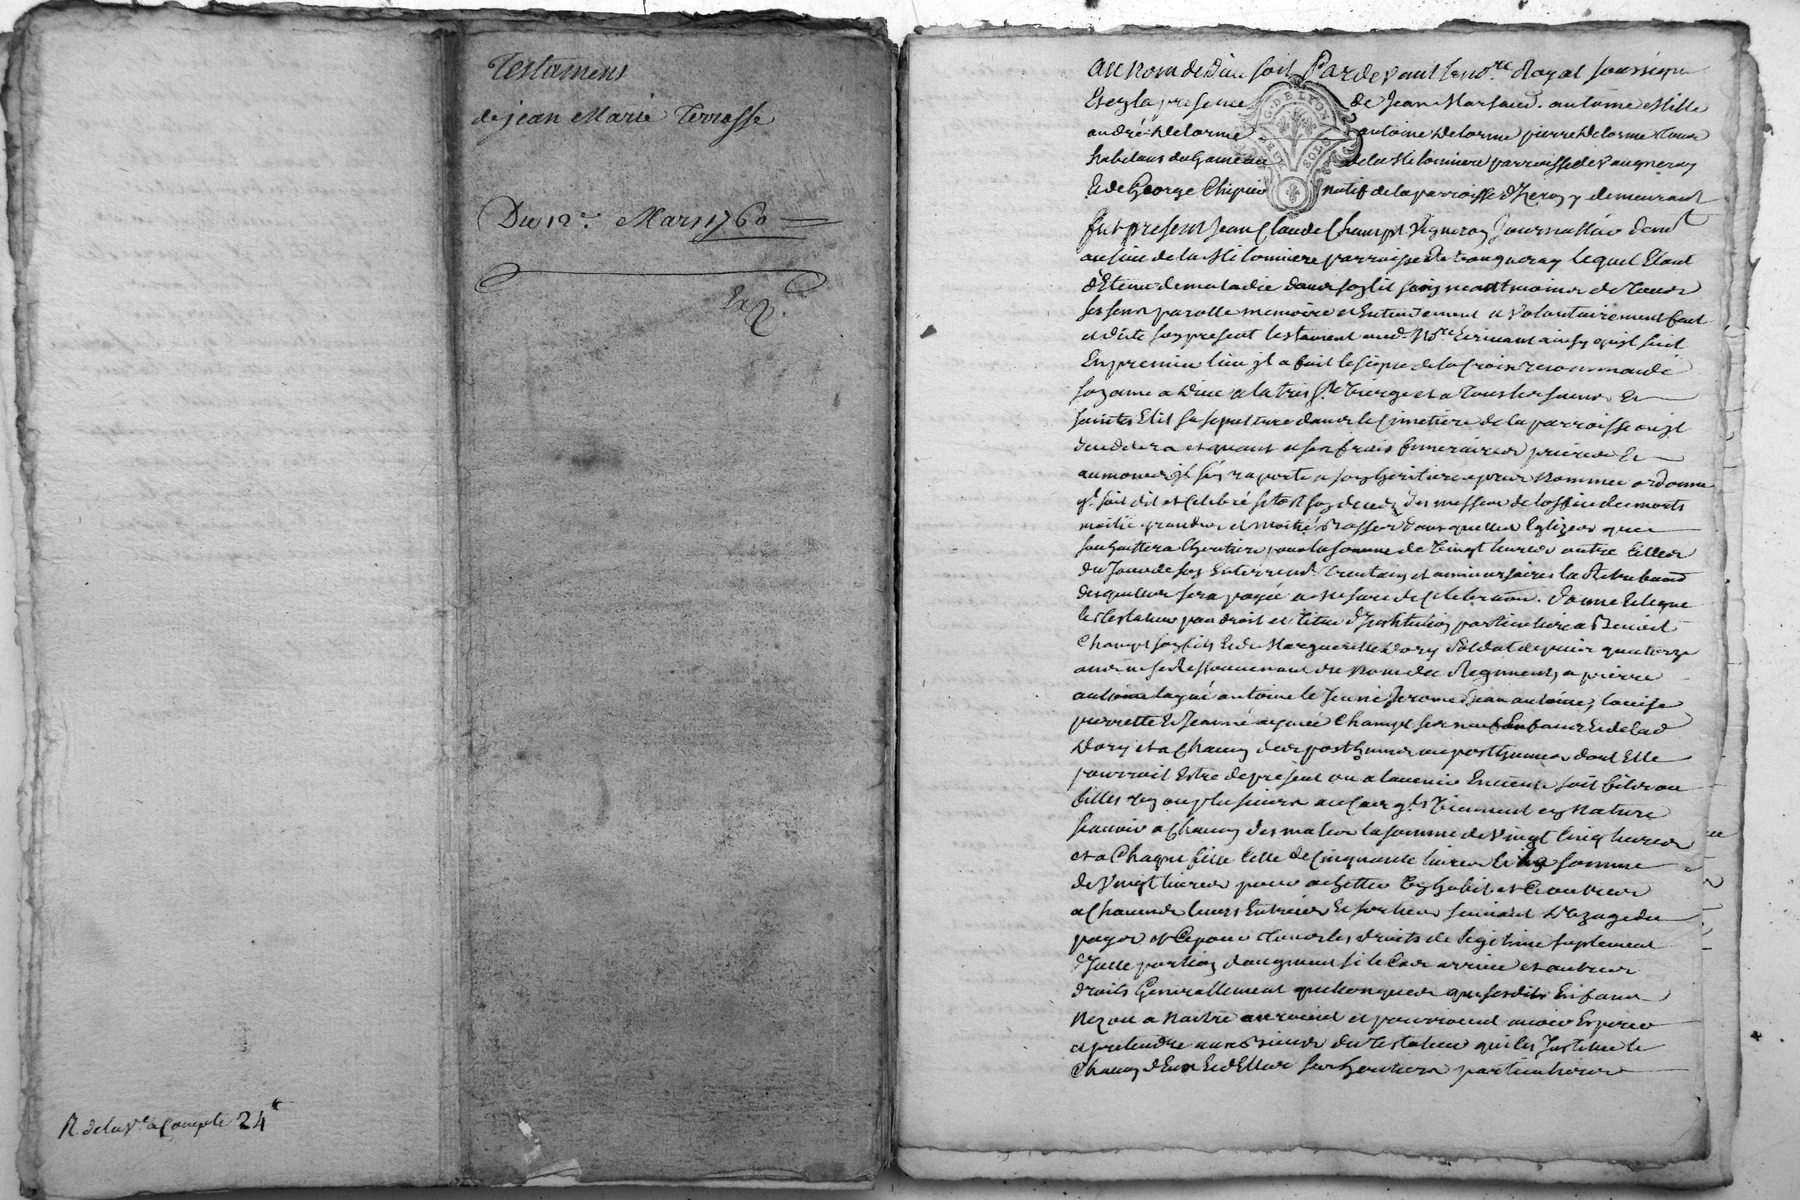 Testament
de jean Marie Terrasse
Du 12e. Mars 1760
R. de la Ve. a Compte 24
au Nom de Dieu soit Pardevant le nore. Royal soussigne
Et en la presence de Jean Marsaud. antoine Mille
andré Delorme antoine Delorme pierre Delorme tous
habitans du hameau de la Milonniere parroisse de Vaugneray
G. DE LYON DEUX SOLS
Et de George Chipier natif de la parroisse d'Izeron y demeurant
fut present Jean Claude Champt Vigneron Journallier demt
au lieu de la Milonniere parroisse de Vaugneray lequel Etant
détenu de maladie dans son lit sain neantmoins de tous
ses sens parolle memoire et Entendement a volontairement fait
et dicté son present testament audt. Nore. Ecrivant ainsy qu'il suit
En premier lieu il a fait le signe de la Croix recommandé
son ame a Dieu a la tres Ste Vierge et a tous les saints Et
saintes Elit sa sepulture dans le Cimetiere de la parroisse ou il
decedera et quant a ses frais funeraires prieres Et
aumones il s'en raporte a son heritiere apres nommée ordonne
qu'il soit dit et Celebré sitost son deced des messes de l'office des morts
moitié grandes et moitié basses dans quelles Eglizes que
souhaittera lheritiere pour la somme de vingt livres outre Celles
du Jour de son Enterremt. trentain et anniversaires la Retribution
desquelles sera payée a mesure de Celebration. Donne Et legue
le testateur par droit et titre d'Institution particuliere a Benoist
Champt son fils Et de Marguerite Dory soldat depuis quatorze
ans ne se Ressouvenant du nom du Regiment, a pierre
antoine layné antoine le Jeune Jerome Jean antoine, louise
pierrette Et Jeanne aymée Champt ses neuf Enfans Et de lad
Dory et a Chacun des posthumes ou posthumes dont Elle
pourroit Estre de present ou a lavenir Enceinte soit fils ou
filles un ou plusieurs au Cas qu'ils viennent en Nature
sçavoir a Chacun des males la somme de vingt Cinq livres
et a Chaque fille Celle de Cinquante livres Et la somme
de vingt livres pour achetter un habit et Et outre
a Chacune leurs Entrées Et sorties suivant L'uzage du
payis et Ce pour tous les droits de legitime suplement
d'Icelle portion d'augment si le Cas arrive et autres
droits Generallement quelconques que sesdits Enfans
Nez ou a Naitre auroient et pourroient avoir Esperer
et pretendre aux Biens du testateur qui les Institue
Chacun d'Eux Et d'Elles ses heritiers particuliers